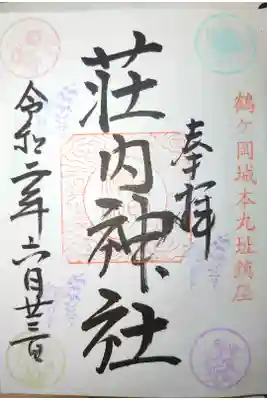 鶴ヶ岡城本丸址鎮座
奉拝
荘内神社
令和二年六月廿三日